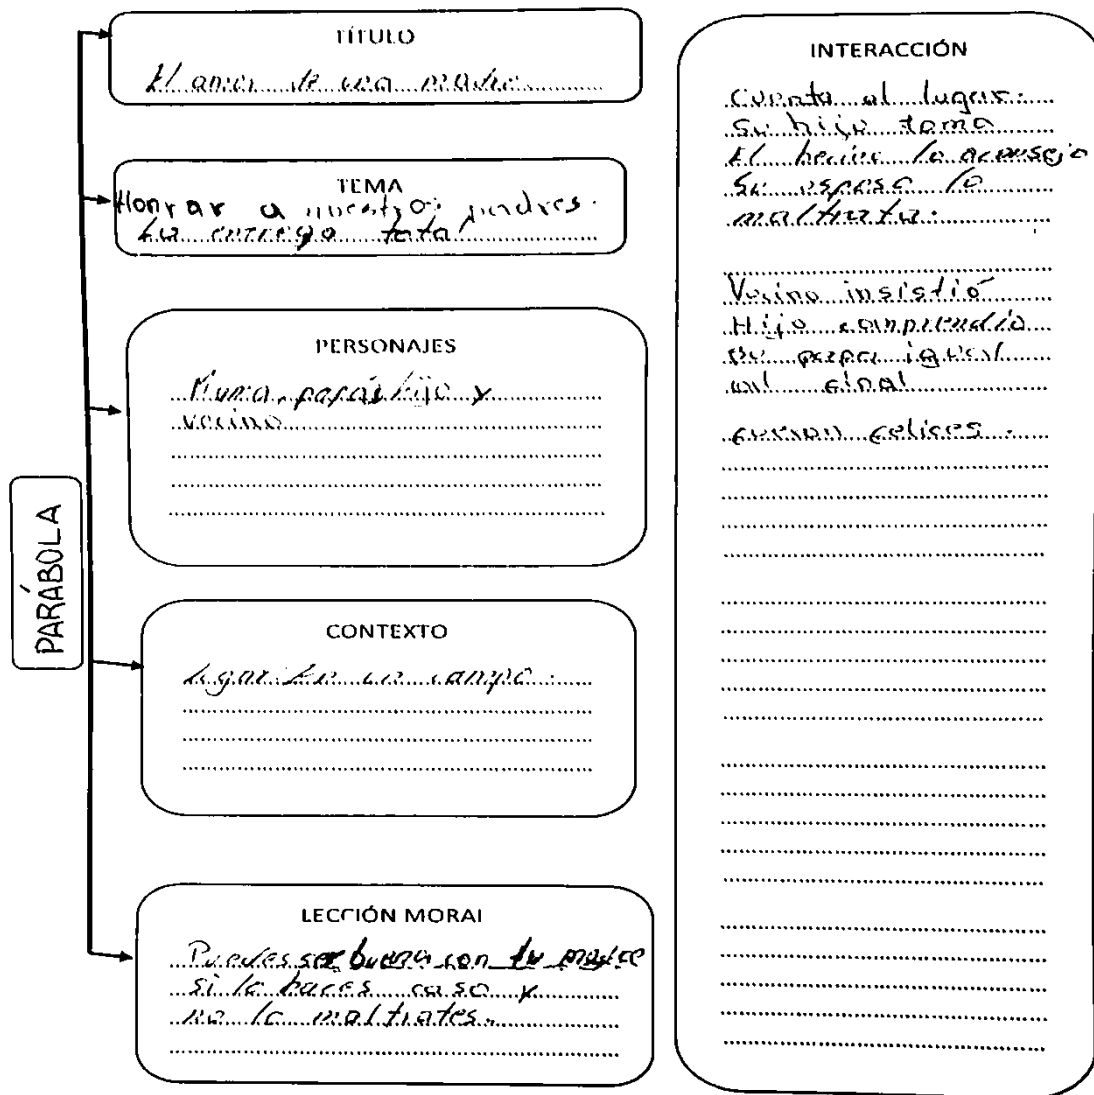 PARÁBOLA
TÍTULO
El amor de una madre
TEMA
Honrar a nuestros padres.
La entrega total
PERSONAJES
Mama, papás hijo y
vecino
CONTEXTO
lugar En un campo.
LECCIÓN MORAL
Puedes ser buena con tu madre
si le haces caso y
no la maltrates.
INTERACCIÓN
Cuenta el lugar.
Su hijo toma
El lo aconseja
Su esposo la
maltrata.
Vecino insistió
Hijo comprendio
su papa igual
al final
fueron felices.